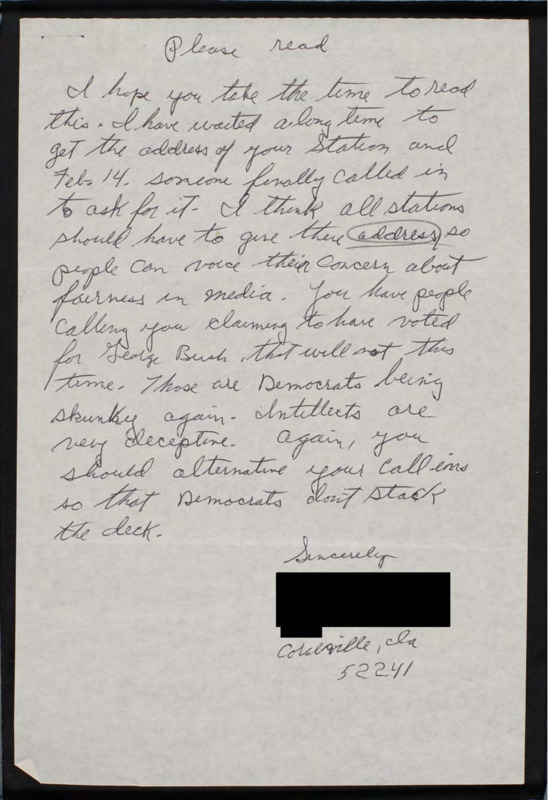 Please read
I hope you take the time to read
this. I have waited a long time to
get the address of your Station and
Feb. 14. someone finally called in
to ask for it. I think all stations
should have to give there address so
people can voice their concern about
fairness in media. You have people
calling you claiming to have voted
for George Bush, that will not this
time. Those are Democrats being
skunky again. Intillects are
very deceptive. Again, you
should alternative your call-ins
so that Democrats dont stack
the deck.
Sincerely
Coralville, Ia
52241